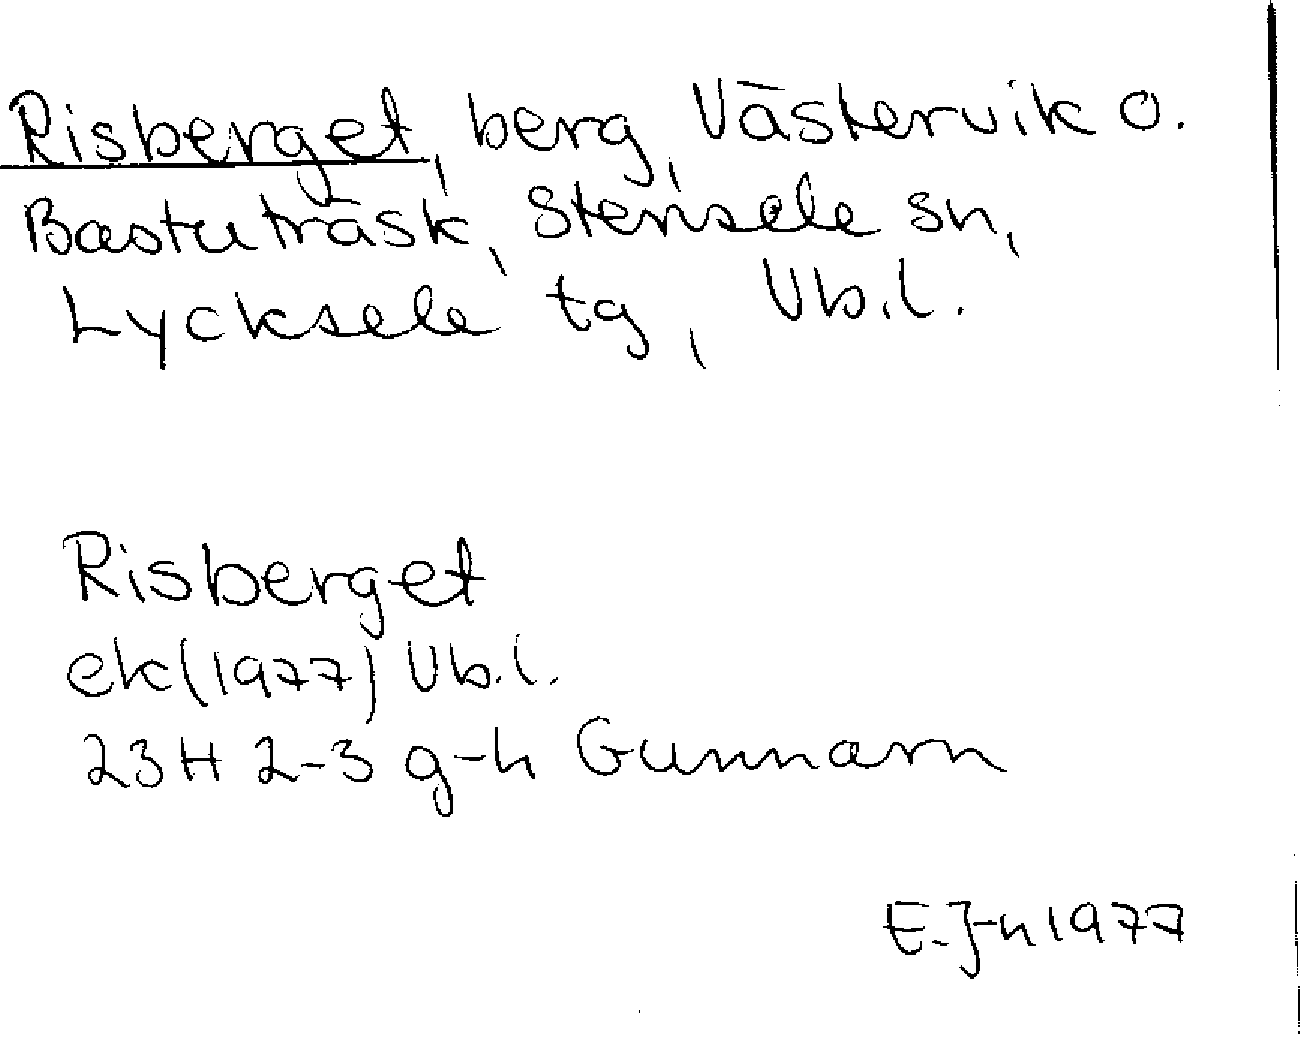 Risberget, berg, Västervik o.
Bastuträsk, Stensele sn,
Lycksele tg, Vb.l.
Risberget
ek(1977) Vb.l.
23H 2-3 g-h Gunnarn
E.J-n 1977